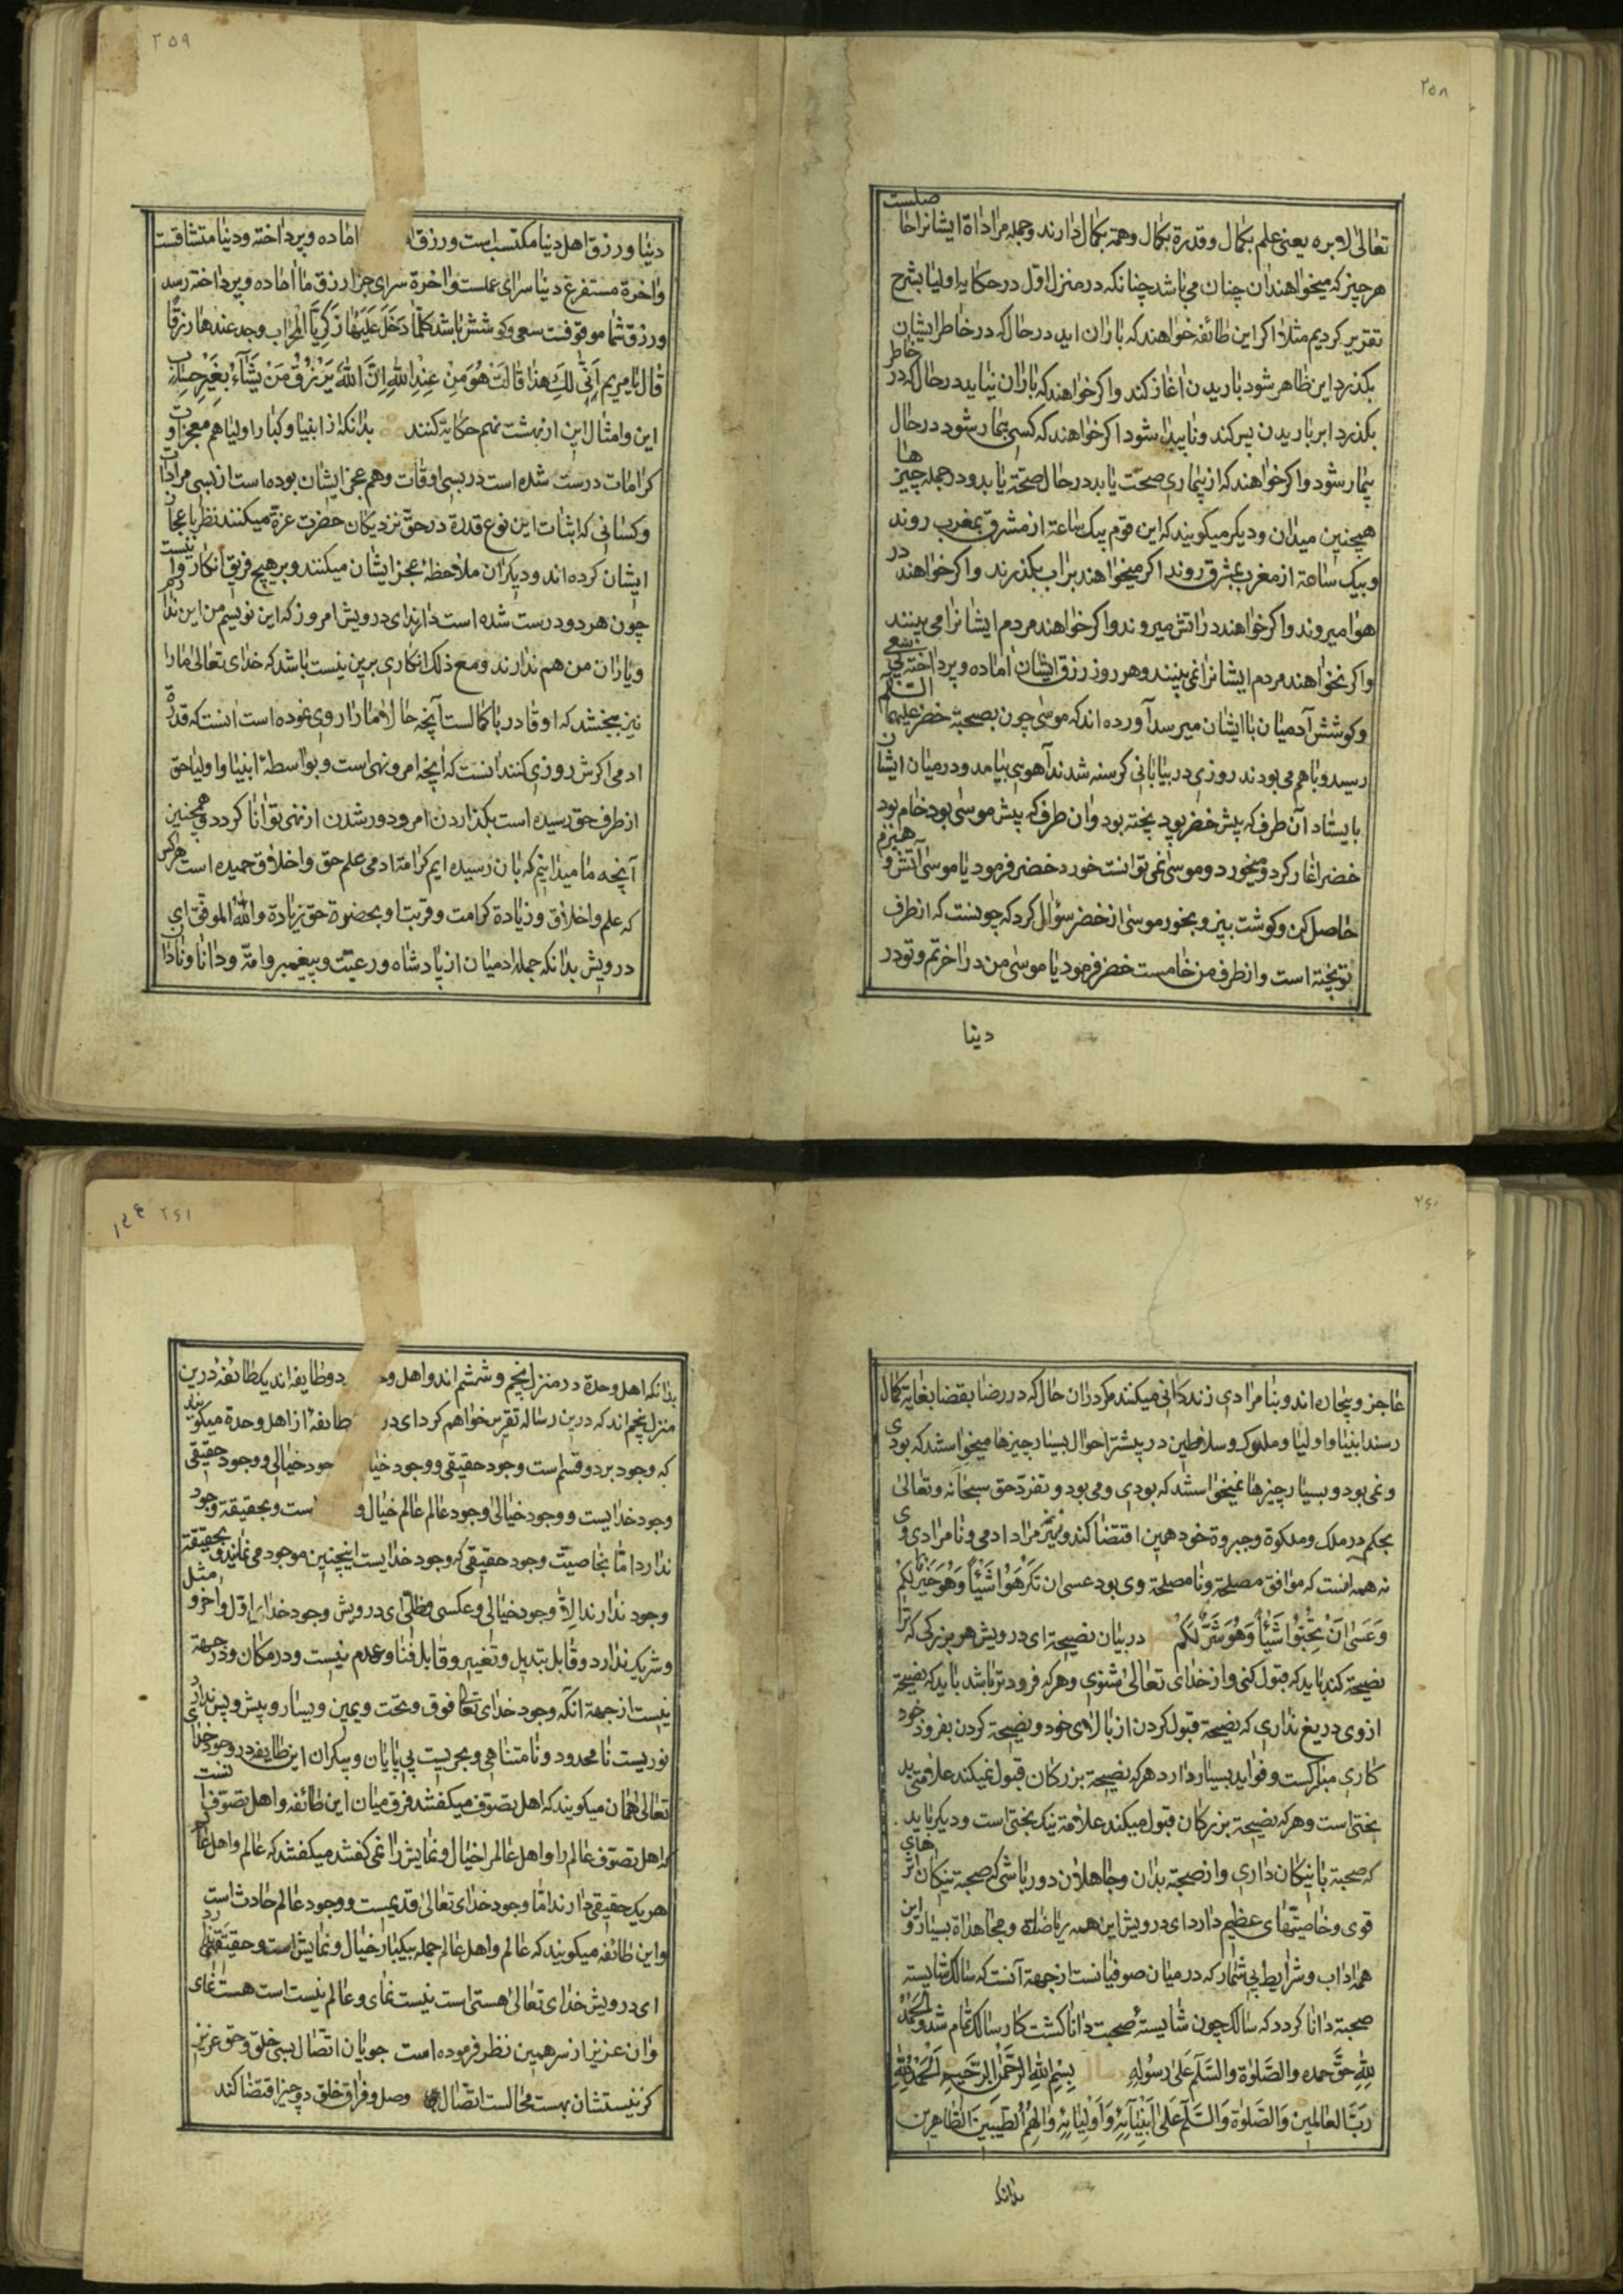 ۲۵۸
تعالی لابره یعنی علم بکمال و قدرة بکمال و همة بکمال دارند و جمله مراداة ایشانرا حاصلست
هرچیز که میخواهند ان چنان می باشد چنانکه در منزل اول در حکایه اولیا بشرح
تقریر کردیم مثلا اکر این طائفه خواهند که باران اید در حال که در خاطر ایشان
بکذرد ابر ظاهر شود باریدن اغاز کند و اکر خواهند که باران نیاید در حال که در خاطر
بکذرد ابر باریدن بس کند و ناپیدا شود اکر خواهند که کسی بیمار شود در حال
بیمار شود و اکر خواهند که از بیماری صحت یابد در حال صحة یابد و در جمله چیزها
همچنین میدان و دیکر میکویند که این قوم بیک ساعة از مشرق بمغرب روند
و بیک ساعة از مغرب بمشرق روند اکر میخواهند بر اب بکذرند و اکر خواهند در
هوا میروند و اکر خواهند در اتش میروند و اکر خواهند مردم ایشانرا می بینند
و اکر نخواهند مردم ایشانرا نمی بینند و هر روز رزق ایشان اماده و پرداخته بی سعی
و کوشش آدمیان باایشان میرسد آورده اند که موسی چون بصحبة خضر علیهما السلم
رسید و باهم می بودند روزی در بیابانی کرسنه شدند آهوی بیامد و درمیان ایشان
بایستاد آن طرف که پیش خضر بود پخته بود و ان طرف که پیش موسی بود خام بود
خضر اغاز کرد و میخورد و موسی نمی توانست خورد خضر فرمود یا موسی آتش و هیزم
حاصل کن و کوشت بپز و بخور موسی از خضر سؤال کرد که چونست که از طرف
تو پخته است و از طرف من خامست خضر فرمود یا موسی من در اخرتم و تو در
دینا
۲۵۹
دینا و رزق اهل دینا مکتسب است و رزق اماده و پرداخته و دینا متشاقست
و اخرة مستفرغ دینا سرای عملست و اخرة سرای جزا رزق ما اماده و پرداخته رسد
و رزق شما موقوفست سعی و کوشش باشد کلما دخل علیها زکریا المحراب وجد عندها رزقا
قال یا مریم انی لک هذا قالت هو من عند الله ان الله یرزق من یشاء بغیر حساب
این و امثال این از بهشت نهم حکایة کنند بدانکه از انبیا و کبار اولیا هم معجزات و
کرامات درست شده است در بسی اوقات و هم عجز ایشان بوده است از بسی مرادات
و کسانی که اثبات این نوع قدرة در حق نزدیکان حضرت عزة میکنند نظر باعجاز
ایشان کرده اند و دیکران ملاحظهٔ عجز ایشان میکنند و بر هیچ فریق انکار روا نیست
چون هر دو درست شده است دارند ای درویش امروز که این نویسم من این ندارم
و یاران من هم ندارند و مع ذلک انکاری برین نیست باشد که خدای تعالی مارا
نیز ببخشد که او قادر باکمالست آنچه حالا مارا روی نموده است انست که قدرة
ادمی اکرش روزی کنند انست که آنچه امر و نهی است و بواسطهٔ انبیا و اولیا حق
از طرف حق رسیده است بکذاردن امر و دور شدن از نهی توانا کردد و همچنین
آنچه ما میدانیم که بان رسیده ایم کرامة ادمی علم حق و اخلاق حمیده است هرکس
که علم و اخلاق و زیادة کرامت و قربت او بحضرة حق زیادة والله الموفق ای
درویش بدانکه جمله ادمیان از پادشاه و رعیت و پیغمبر و امة و دانا و نادان
۲۶۰
عاجز و بیچاره اند و بنامرادی زندکانی میکنند مکر در ان حال که در رضا بقضا بغایة کمال
رسند انبیا و اولیا و ملوک و سلاطین در بیشتر احوال بسیار چیزها میخواستند که بودی
و نمی بود و بسیار چیزها نمیخواستند که بودی و می بود و تفرد حق سبحانه و تعالی
بحکم در ملک و ملکوة و جبروة خود همین اقتضا کند و نیز مراد ادمی و نامرادی وی
نه همه آنست که موافق مصلحة و نامصلحة وی بود عسی ان تکرهوا شیئا و هو خیر لکم
و عسی ان تحبوا شیئا و هو شر لکم در بیان نصیحة ای درویش هر بزرکی که ترا
نصیحة کند باید که قبول کنی و از خدای تعالی شنوی و هرکه فرودتر باشد باید که نصیحة
از وی دریغ نداری که نصیحة قبول کردن از بالای خود و نصیحة کردن بفرود خود
کاری مبارکست و فواید بسیار دارد هرکه نصیحة بزرکان قبول نمیکند علامة بد
بختی است و هرکه نصیحة بزرکان قبول میکند علامة نیک بختی است و دیکر باید
که صحبة با نیکان داری و از صحبة بدان و جاهلان دور باشی که صحبة نیکان اثرهای
قوی و خاصیتهای عظیم دارد ای درویش این همه ریاضاة و مجاهداة بسیار و این
همه اداب و شرایط بی شمار که در میان صوفیانست از جهة آنست که سالک شایسته
صحبة دانا کردد که سالک چون شایستهٔ صحبت دانا کشت کار سالک تمام شد و الحمد
لله حق حمده و الصلوة و السلم علی رسوله بسم الله الرحمن الرحیم الحمد لله
رب العالمین و الصلوة و السلم علی انبیائه و اولیائه و الهم الطیبین الطاهرین
بدانکه
۲۶۱
بدانکه اهل وحدة در منزل پنجم و ششم اند و اهل دو طایفه اند یک طائفه درین
منزل پنجم اند که درین رساله تقریر خواهم کرد ای در طائفهٔ از اهل وحدة میکویند
که وجود بر دو قسم است وجود حقیقی و وجود خیا خیالی و وجود حقیقی
وجود خدایست و وجود خیالی وجود عالم عالم خیال و است و بحقیقة وجود
ندارد اما بخاصیت وجود حقیقی که وجود خدایست اینچنین موجود می نماید و بحقیقة
وجود ندارند الا وجود خیالی و عکسی و ظلی ای درویش وجود خدای اول و اخر و مثل
و شریک ندارد و قابل تبدیل و تغییر و قابل فنا و عدم نیست و در مکان و در جهة
نیست از جهة انکه وجود خدای تعالی فوق و تحت و یمین و یسار و پیش و پس ندارد
نوریست نامحدود و نامتناهی و بحریست بی پایان و بیکران این طایفه در وجود خدای
تعالی همان میکویند که اهل تصوف میکفتند فرق میان این طائفه و اهل تصوف
که اهل تصوف عالم را و اهل عالم را خیال و نمایش را نمی کفتند میکفتند که عالم و اهل عالم
هریک حقیقی دارند اما وجود خدای تعالی قدیمست و وجود عالم حادث است
و این طائفه میکویند که عالم و اهل عالم جمله بیکبار خیال و نمایش است و حقیقتی ندارد
ای درویش خدای تعالی هستی است نیست نمای و عالم نیست است هست نمای
و ان عزیز از سر همین نظر فرموده است جویان اتصال بسی خلق و حق عزیز
کز نیستشان بهست محالست اتصال وصل و فراق خلق دو چیز اقتضا کند